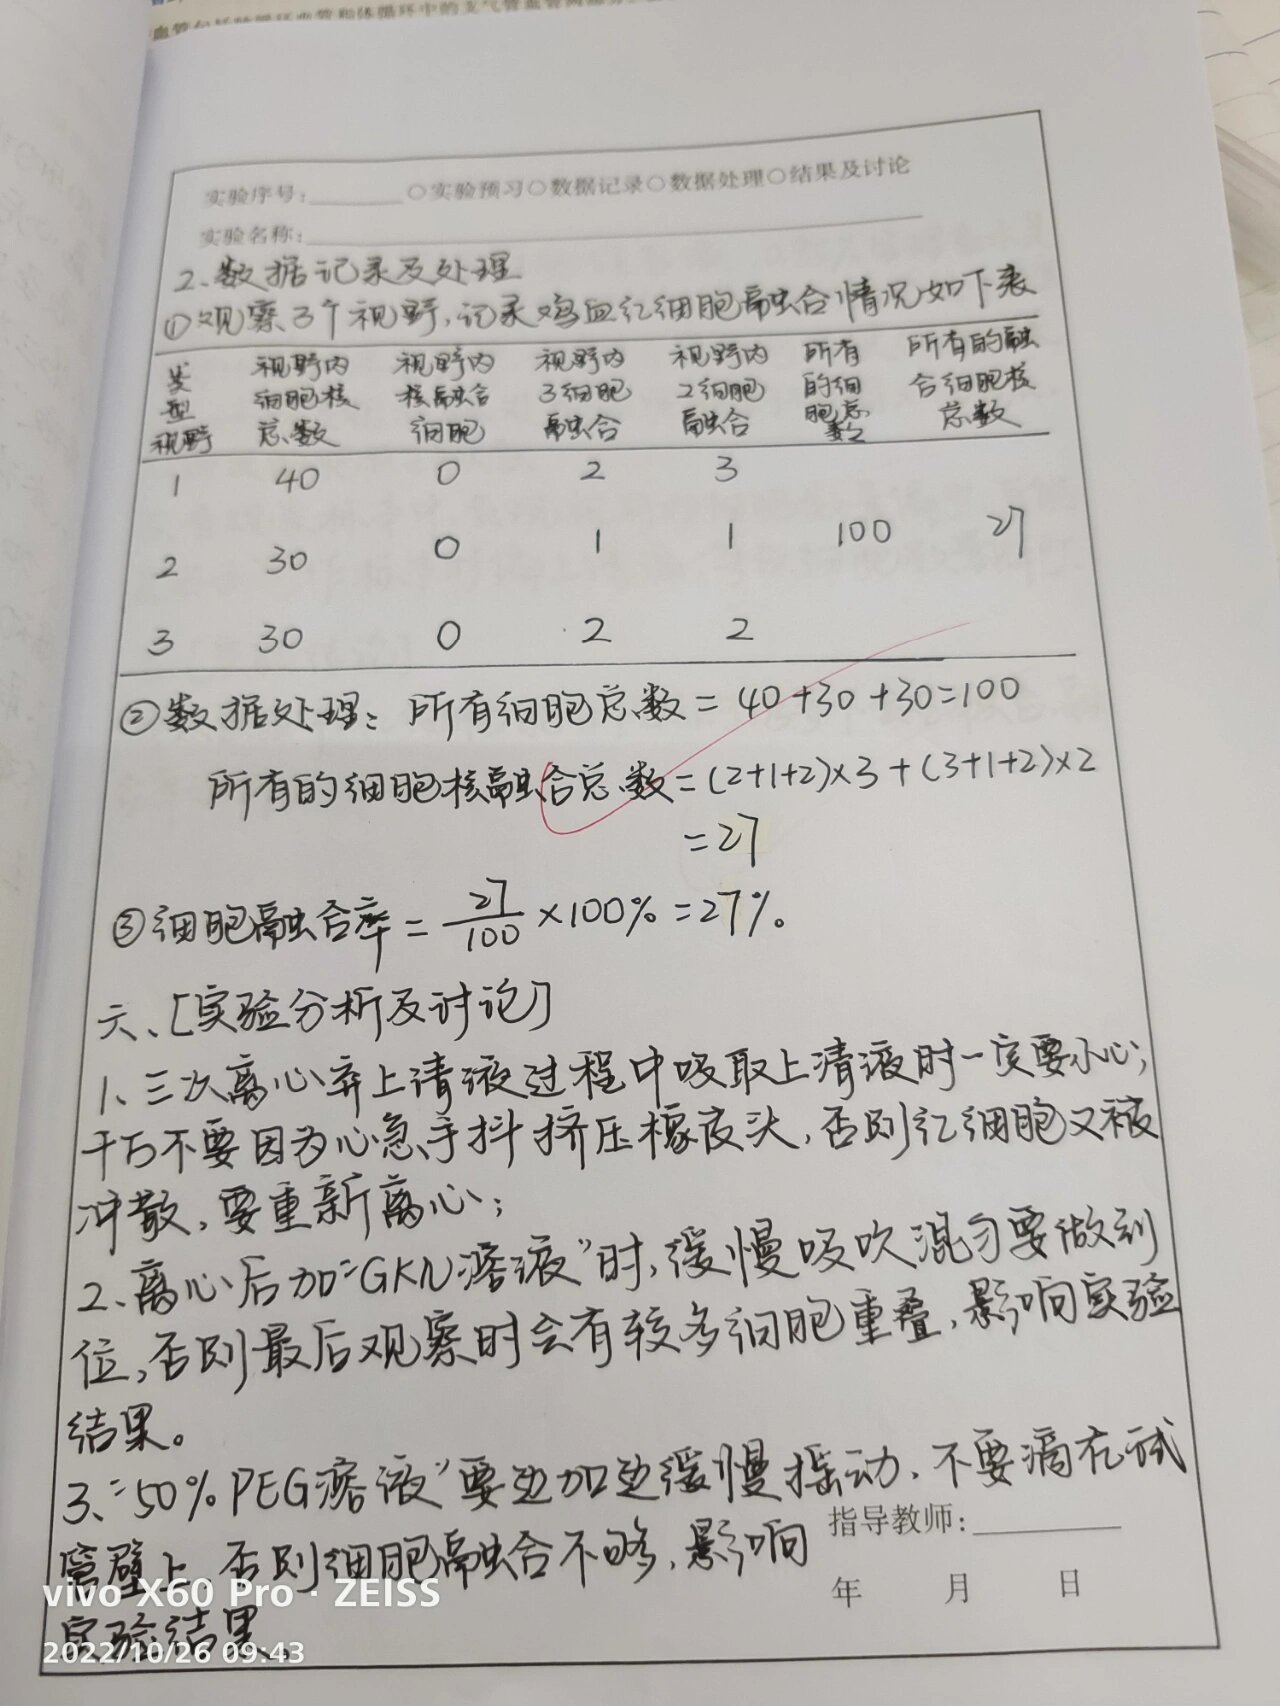 实验序号:________ ○实验预习○数据记录○数据处理○结果及讨论
实验名称:
2、数据记录及处理
①观察3个视野,记录鸡血红细胞融合情况如下表
类型 视野 视野内细胞核总数 视野内核融合细胞 视野内3细胞融合 视野内2细胞融合 所有的细胞总数 所有的融合细胞核总数
1 40 0 2 3
2 30 0 1 1 100 27
3 30 0 2 2
②数据处理: 所有细胞总数 = 40+30+30=100
所有的细胞核融合总数=(2+1+2)×3+(3+1+2)×2
=27
③细胞融合率 = 27/100 ×100% =27%。
六、[实验分析及讨论]
1、三次离心弃上清液过程中吸取上清液时一定要小心;
千万不要因为心急手抖挤压橡皮头,否则红细胞又被
冲散,要重新离心;
2、离心后加“GKN溶液”时,缓慢吸吹混匀要做到
位,否则最后观察时会有较多细胞重叠,影响实验
结果。
3、“50% PEG溶液”要边加边缓慢摇动,不要滴在试
管壁上,否则细胞融合不够,影响
实验结果。
指导教师:________
年 月 日
vivo X60 Pro · ZEISS
2022/10/26 09:43